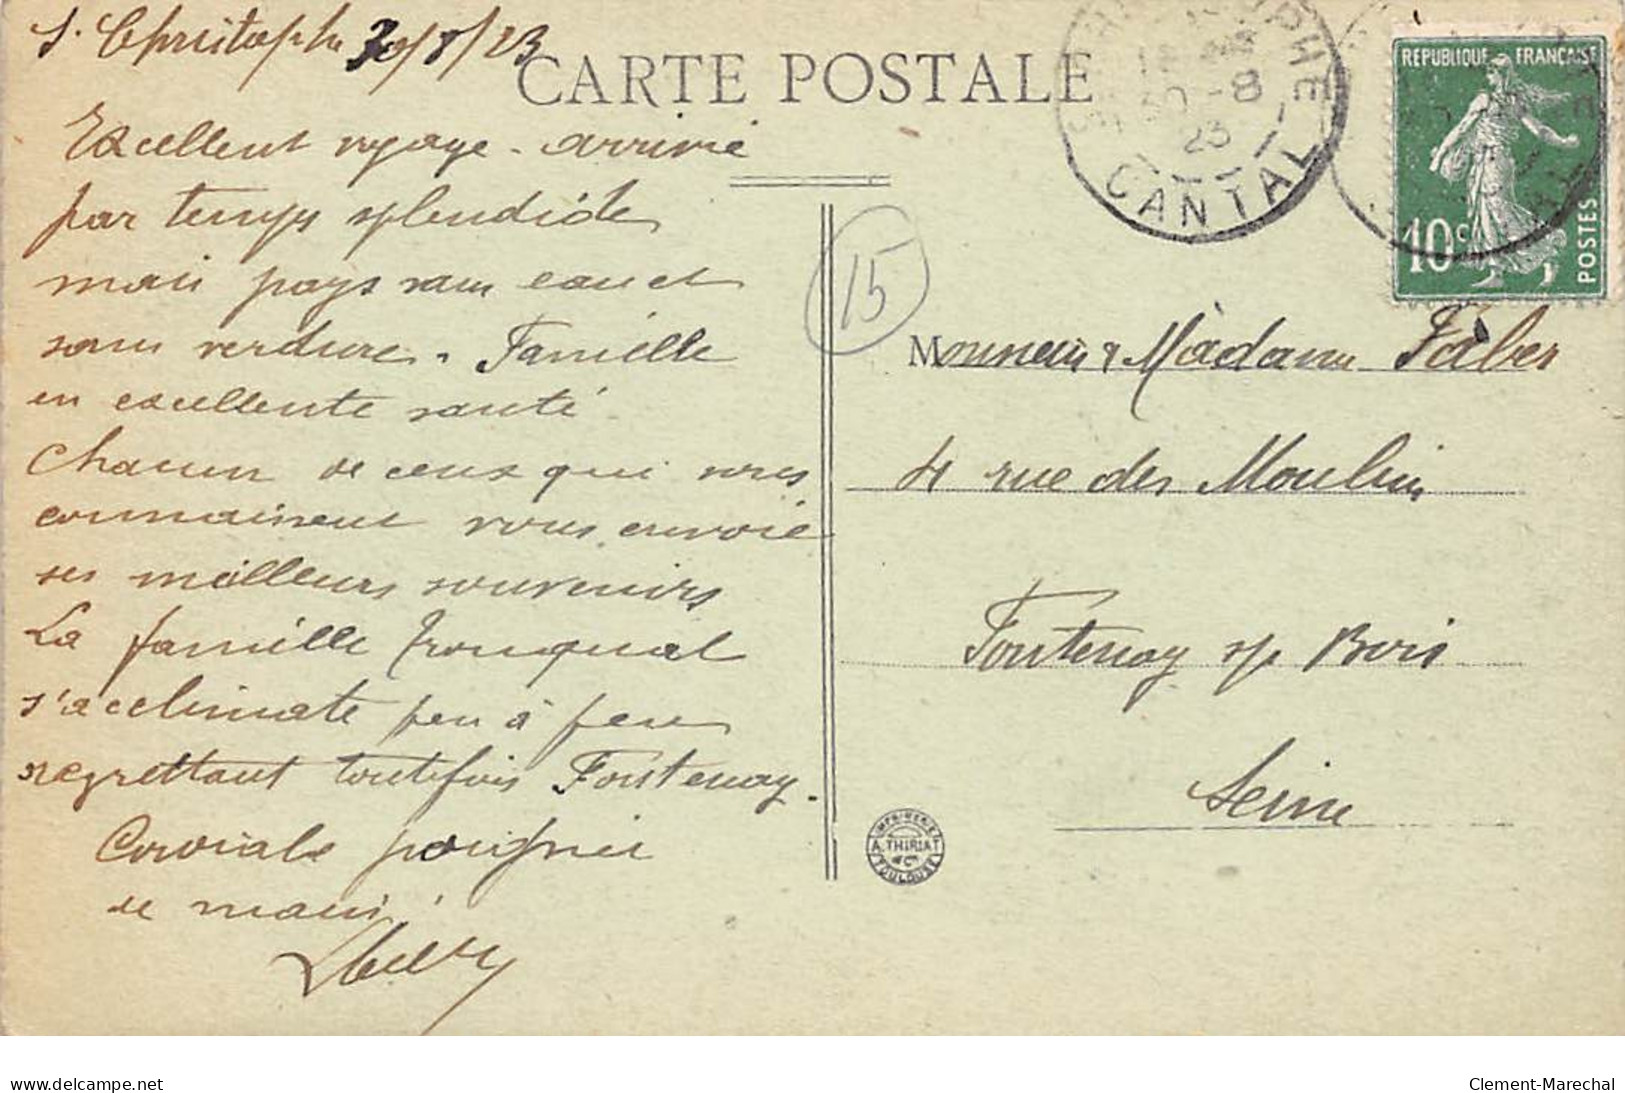 S. Christophe 30/8/23
CARTE POSTALE
Excellent voyage - arrivé
par temps splendide
mais pays sans eau et
sans verdure. Famille
en excellente santé
Chacun de ceux qui vous
connaissent vous envoie
ses meilleurs souvenirs
La famille
s'acclimate peu à peu
regrettant toutefois Fontenay.
Cordiale poignée
de main
15
CANTAL
30-8
23
REPUBLIQUE FRANÇAISE
10c
POSTES
Monsieur & Madame Faber
4 rue des Moulins
Fontenay s/s Bois
Seine
IMPRIMERIE
A. THIRIAT
& Cie
TOULOUSE
www.delcampe.net
Clement-Marechal